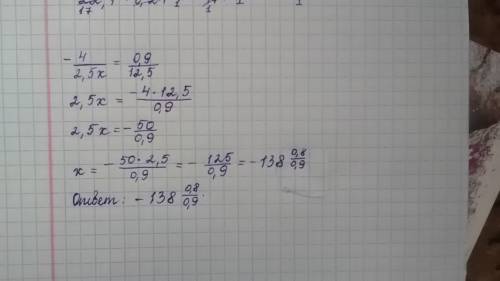 -4/2,5x = 0,9/12,5
2,5x = -4·12,5/0,9
2,5x = -50/0,9
x = -50·2,5/0,9 = -125/0,9 = -138 0,8/0,9
Ответ: -138 0,8/0,9.